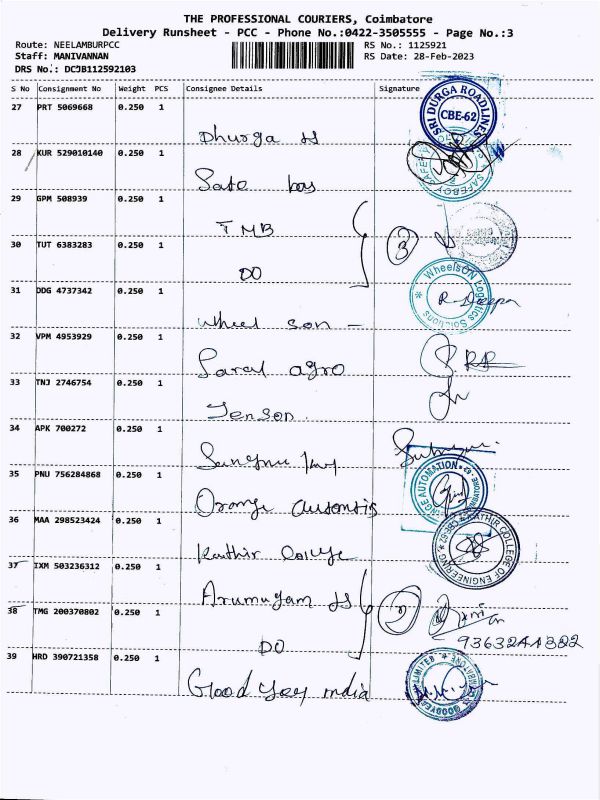 THE PROFESSIONAL COURIERS, Coimbatore
Delivery Runsheet - PCC - Phone No.:0422-3505555 - Page No.:3
Route: NEELAMBURPCC RS No.: 1125921
Staff: MANIVANNAN RS Date: 28-Feb-2023
DRS No.: DCJB112592103
S No Consignment No Weight PCS Consignee Details Signature
27 PRT 5069668 0.250 1
SRI DURGA ROADLINES
CBE-62
Dhurga
28 KUR 529010140 0.250 1
SAFEBOY
Safe boy
29 GPM 508939 0.250 1
TMB
3
30 TUT 6383283 0.250 1
DO
31 DDG 4737342 0.250 1
WheelsON Logistics Solutions
R. Deepa
wheel son -
32 VPM 4953929 0.250 1
Saral agro
33 TNJ 2746754 0.250 1
Jenson
34 APK 700272 0.250 1
35 PNU 756284868 0.250 1
AUTOMATION
Orange
36 MAA 298523424 0.250 1
KATHIR COLLEGE OF ENGINEERING
Kathir College
37 IXM 503236312 0.250 1
Arumugam
38 TMG 200370802 0.250 1
DO
39 HRD 390721358 0.250 1
GOODYEAR
LIMITED
Good yer india